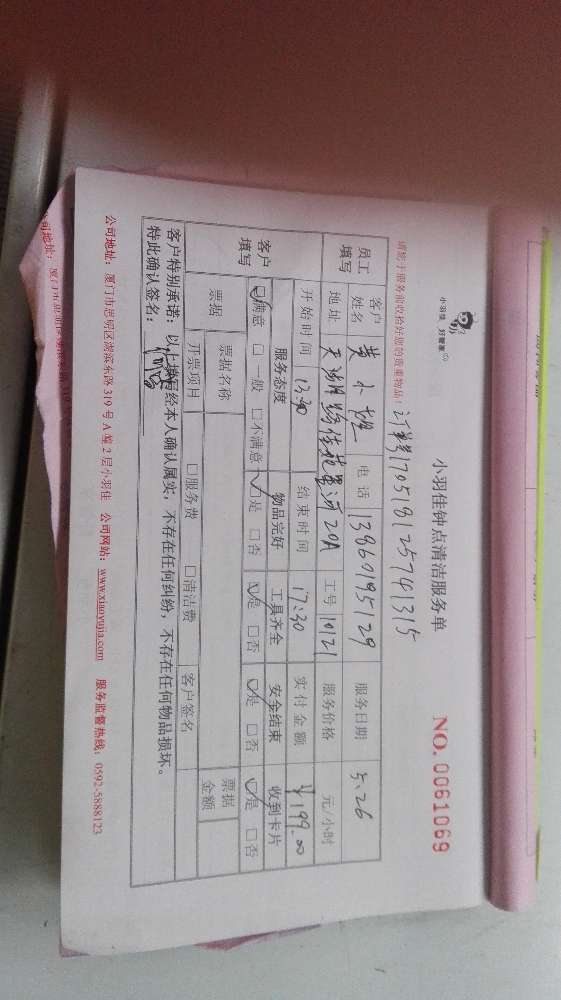 小羽佳 好管家
小羽佳钟点清洁服务单
NO. 0061069
请您于服务前收检好您的贵重物品!
订单号170518125741315
员工填写 客户姓名 黄小姐 电话 13860195129 服务日期 5.26
地址 20A 工号 10121 服务价格 元/小时
开始时间 13:30 结束时间 17:30 实付金额 ¥199.00
客户填写 服务态度 物品完好 工具齐全 安全结束 收到卡片
☑满意 □一般 □不满意 ☑是 □否 ☑是 □否 ☑是 □否 ☑是 □否
票据 票据名称 票据金额
开票项目 □服务费 □清洁费 客户签名
客户特别承诺:以上填写经本人确认属实,不存在任何纠纷,不存在任何物品损坏。
特此确认签名:
公司地址:厦门市思明区湖滨东路319号A幢2层小羽佳 公司网站:www.xiaoyujia.com 服务监督热线:0592-5888123